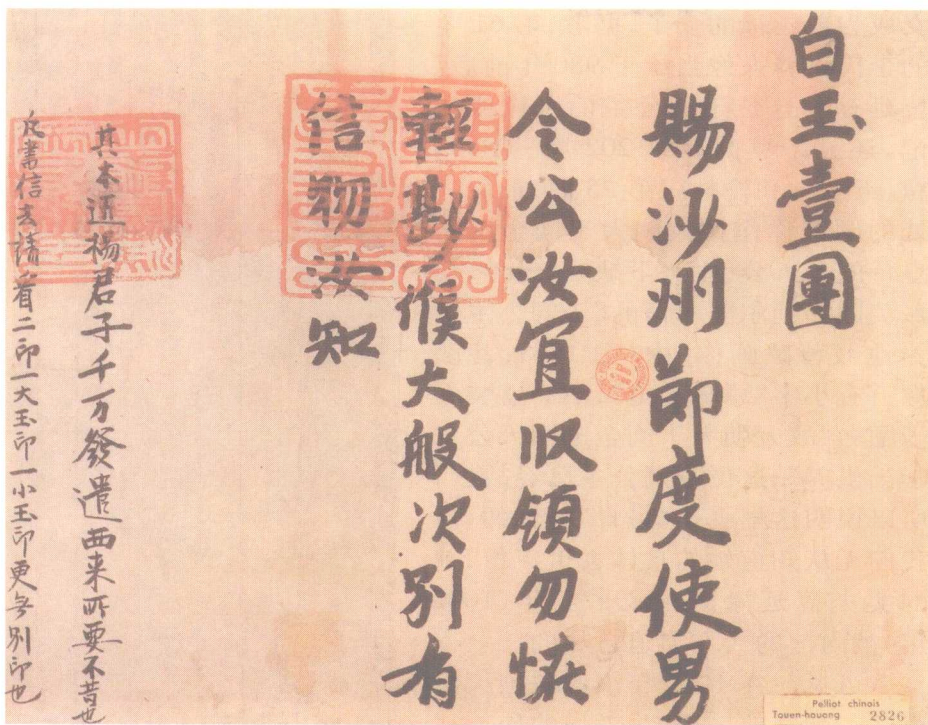 白玉壹團
賜沙州莭度使男
令公汝宜収領勿恠
輕尠候大般次別有
信物汝知
其木匠楊君子千万發遣西来所要不昔也
凡書信去請看二印一大玉印一小玉印更無別印也
Pelliot chinois
Touen-houang 2826